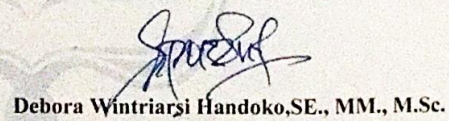 Debora Wintriarsi Handoko,SE., MM., M.Sc.